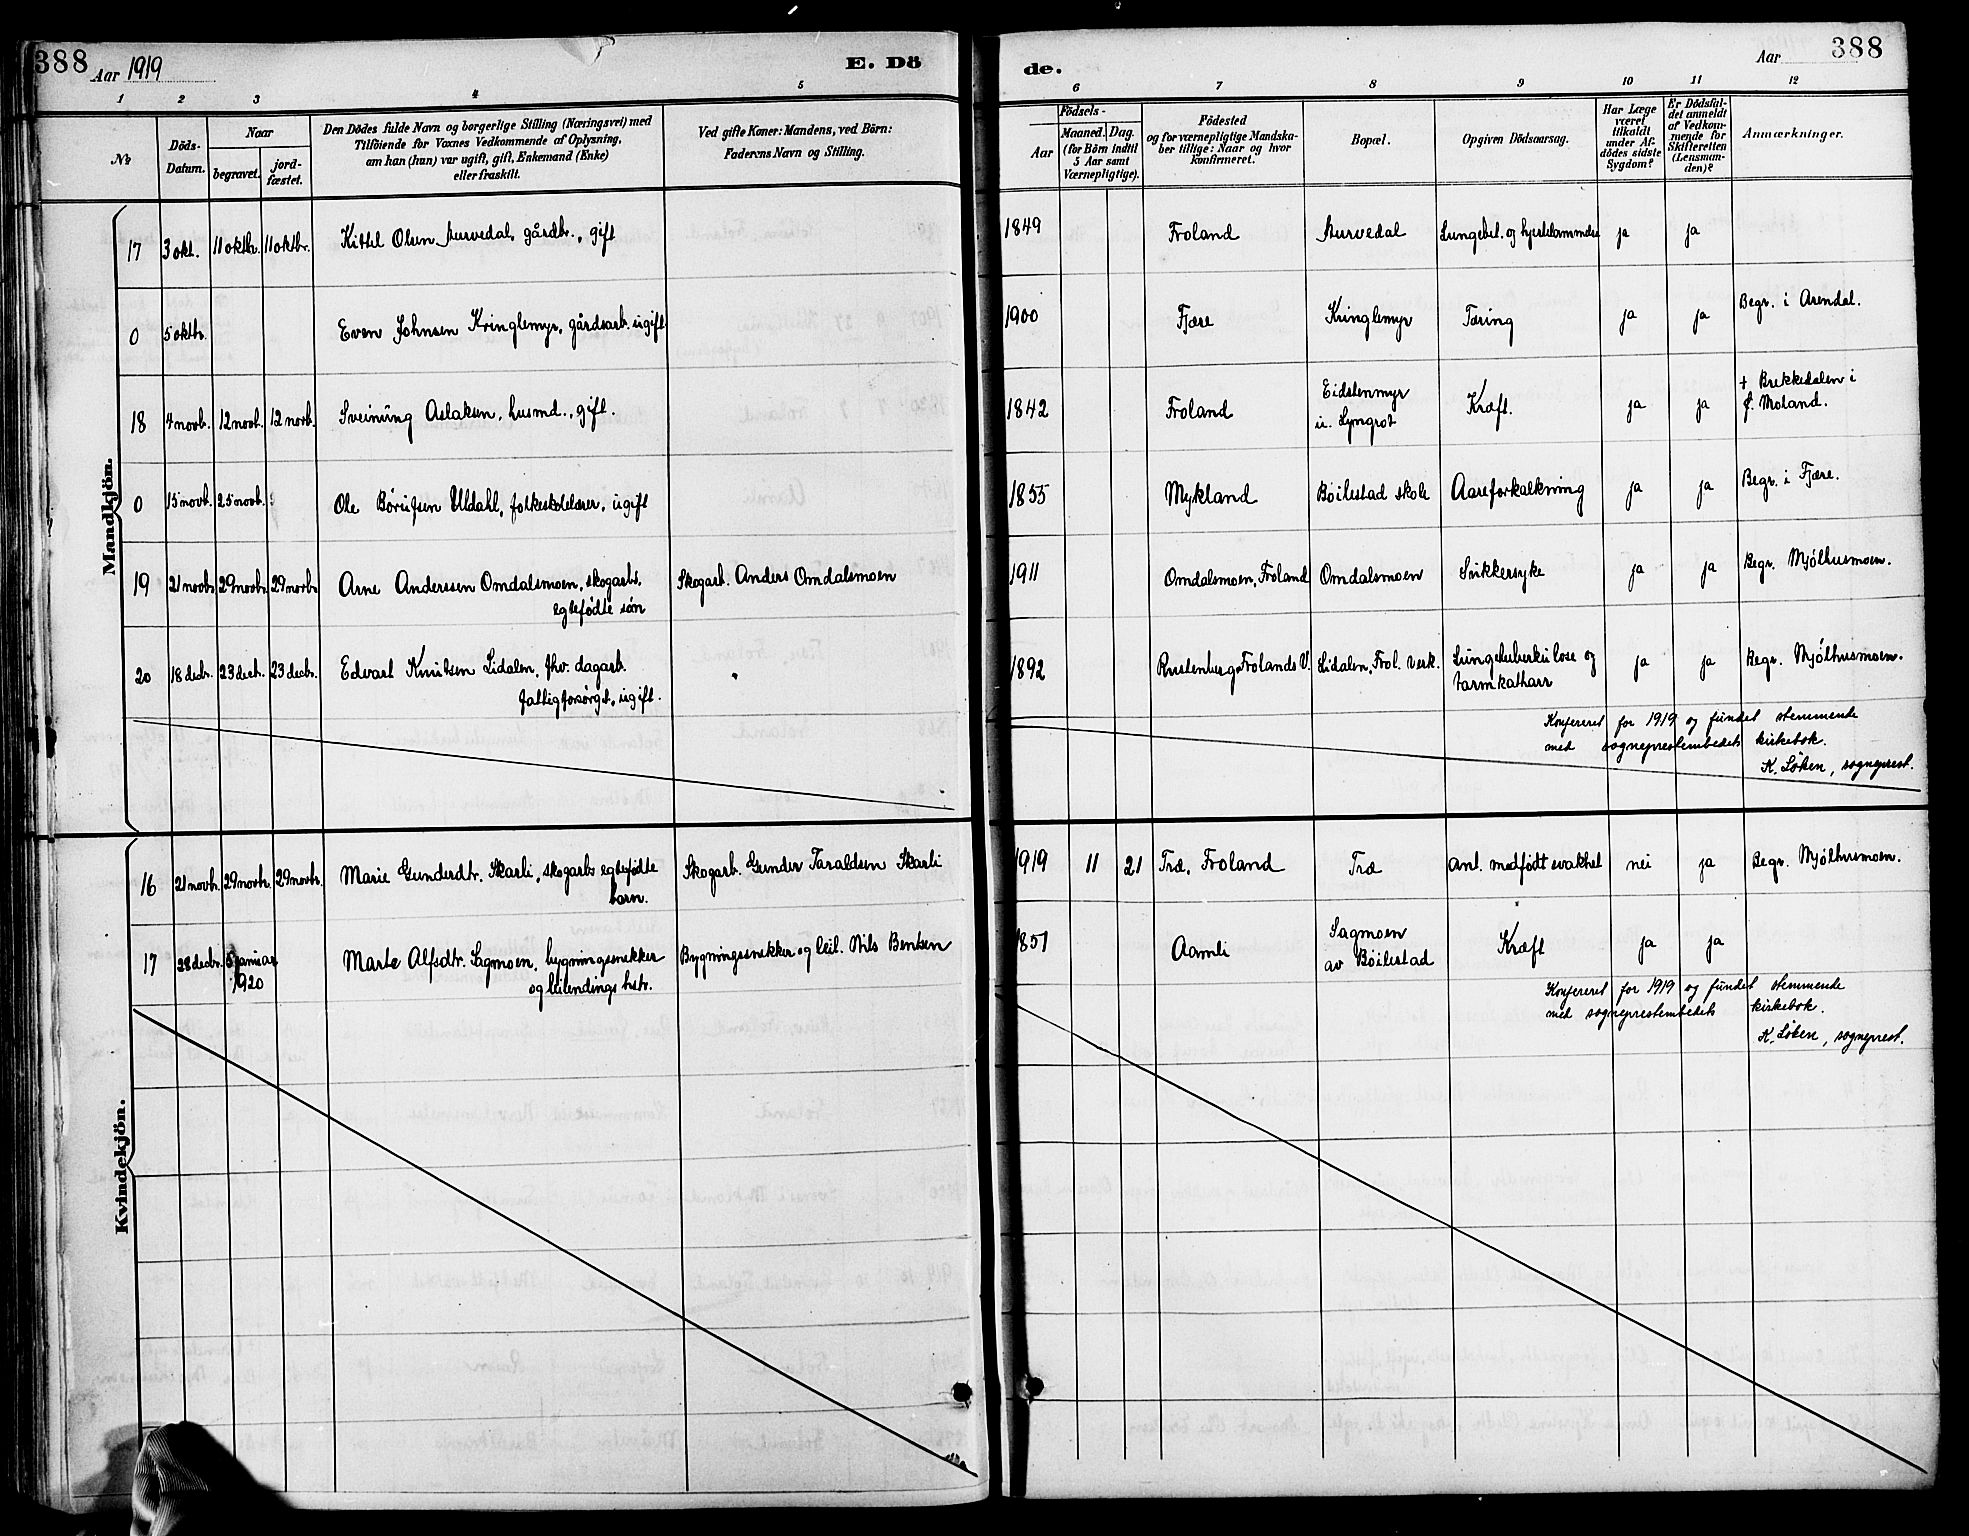 388
Aar 1919
E. Dö
de.
Aar
388
1 2 3 4 5
6 7 8 9 10 11 12
No
Döds-
Datum.
Naar
begravet.
jord-
fæstet.
Den Dödes fulde Navn og borgerlige Stilling (Næringsvei) med
Tilföiende for Voxnes Vedkommende af Oplysning,
om han (hun) var ugift, gift, Enkemand (Enke)
eller fraskilt.
Ved gifte Koner: Mandens, ved Börn:
Faderens Navn og Stilling.
Födsels-
Aar
Maaned. Dag.
(for Börn indtil
5 Aar samt
Værnepligtige).
Födested
og for værnepligtige Mandska-
ber tillige: Naar og hvor
konfirmeret.
Bopæl.
Opgiven Dödsaarsag.
Har Læge
været
tilkaldt
under Af-
dödes sidste
Sygdom?
Er Dödsfal-
det anmeldt
af Vedkom-
mende for
Skifteretten
(Lensman-
den)?
Anmærkninger.
Mandkjön.
17 3 okt. 11 oktbr. 11 oktbr. Kittil Olsen Murvedal, gårdbr., gift 1849 Froland Murvedal Lungebet. og hjertelammelse ja ja
0 5 oktbr. Even Johnsen Kringlemyr, gårdsarb. ugift 1900 Fjære Kringlemyr Tæring ja ja Begr. i Arendal.
18 4 novb. 12 novb. 12 novb. Sveinung Aslaksen, husmd., gift. 1842 Froland Eidstenmyr
u. Lyngrot Kræft. ja ja † Brekkedalen i
Ø. Moland.
0 15 novb. 25 novb. Ole Børufsen Uldahl, folkeskolelærer, ugift 1855 Mykland Bøilestad skole Aareforkalkning ja ja Begr. i Fjære.
19 21 novbr. 29 novbr. 29 novbr. Arne Anderssen Omdalsmoen, skogarbs.
egtefødte søn Skogarb. Anders Omdalsmoen 1911 Omdalsmoen, Froland Omdalsmoen Sukkersyke ja ja Begr. Mjølhusmoen.
20 18 decbr. 23 decbr. 23 decbr. Edvart Knutsen Lidalen, fhv. dagarb.
fattigforsørget, ugift. 1892 Rustenberg, Frolands V. Lidalen, Frol. Verk. Lungetuberkulose og
tarmkatharr ja ja Begr. Mjølhusmoen.
Konfereret for 1919 og fundet stemmende
med sogneprestembedets kirkebok.
K. Løken, sogneprest.
Kvindekjön.
16 21 novbr. 29 novbr. 29 novbr. Marie Gundersdtr. Skarli, skogarbs egtefødte
barn. Skogarb. Gunder Taraldsen Skarli 1919 11 21 Træ, Froland Træ Ant. medfødt svakhet nei ja Begr. Mjølhusmoen.
17 28 decbr. januar
1920 Marte Alfsdtr. Sagmoen, bygningssnekker
og leilendings hstr. Bygningssnekker og leil. Nils Bentsen 1851 Aamli Sagmoen
av Bøilestad Kræft ja ja
Konfereret for 1919 og fundet stemmende
med sogneprestembedets kirkebok.
K. Løken, sogneprest.